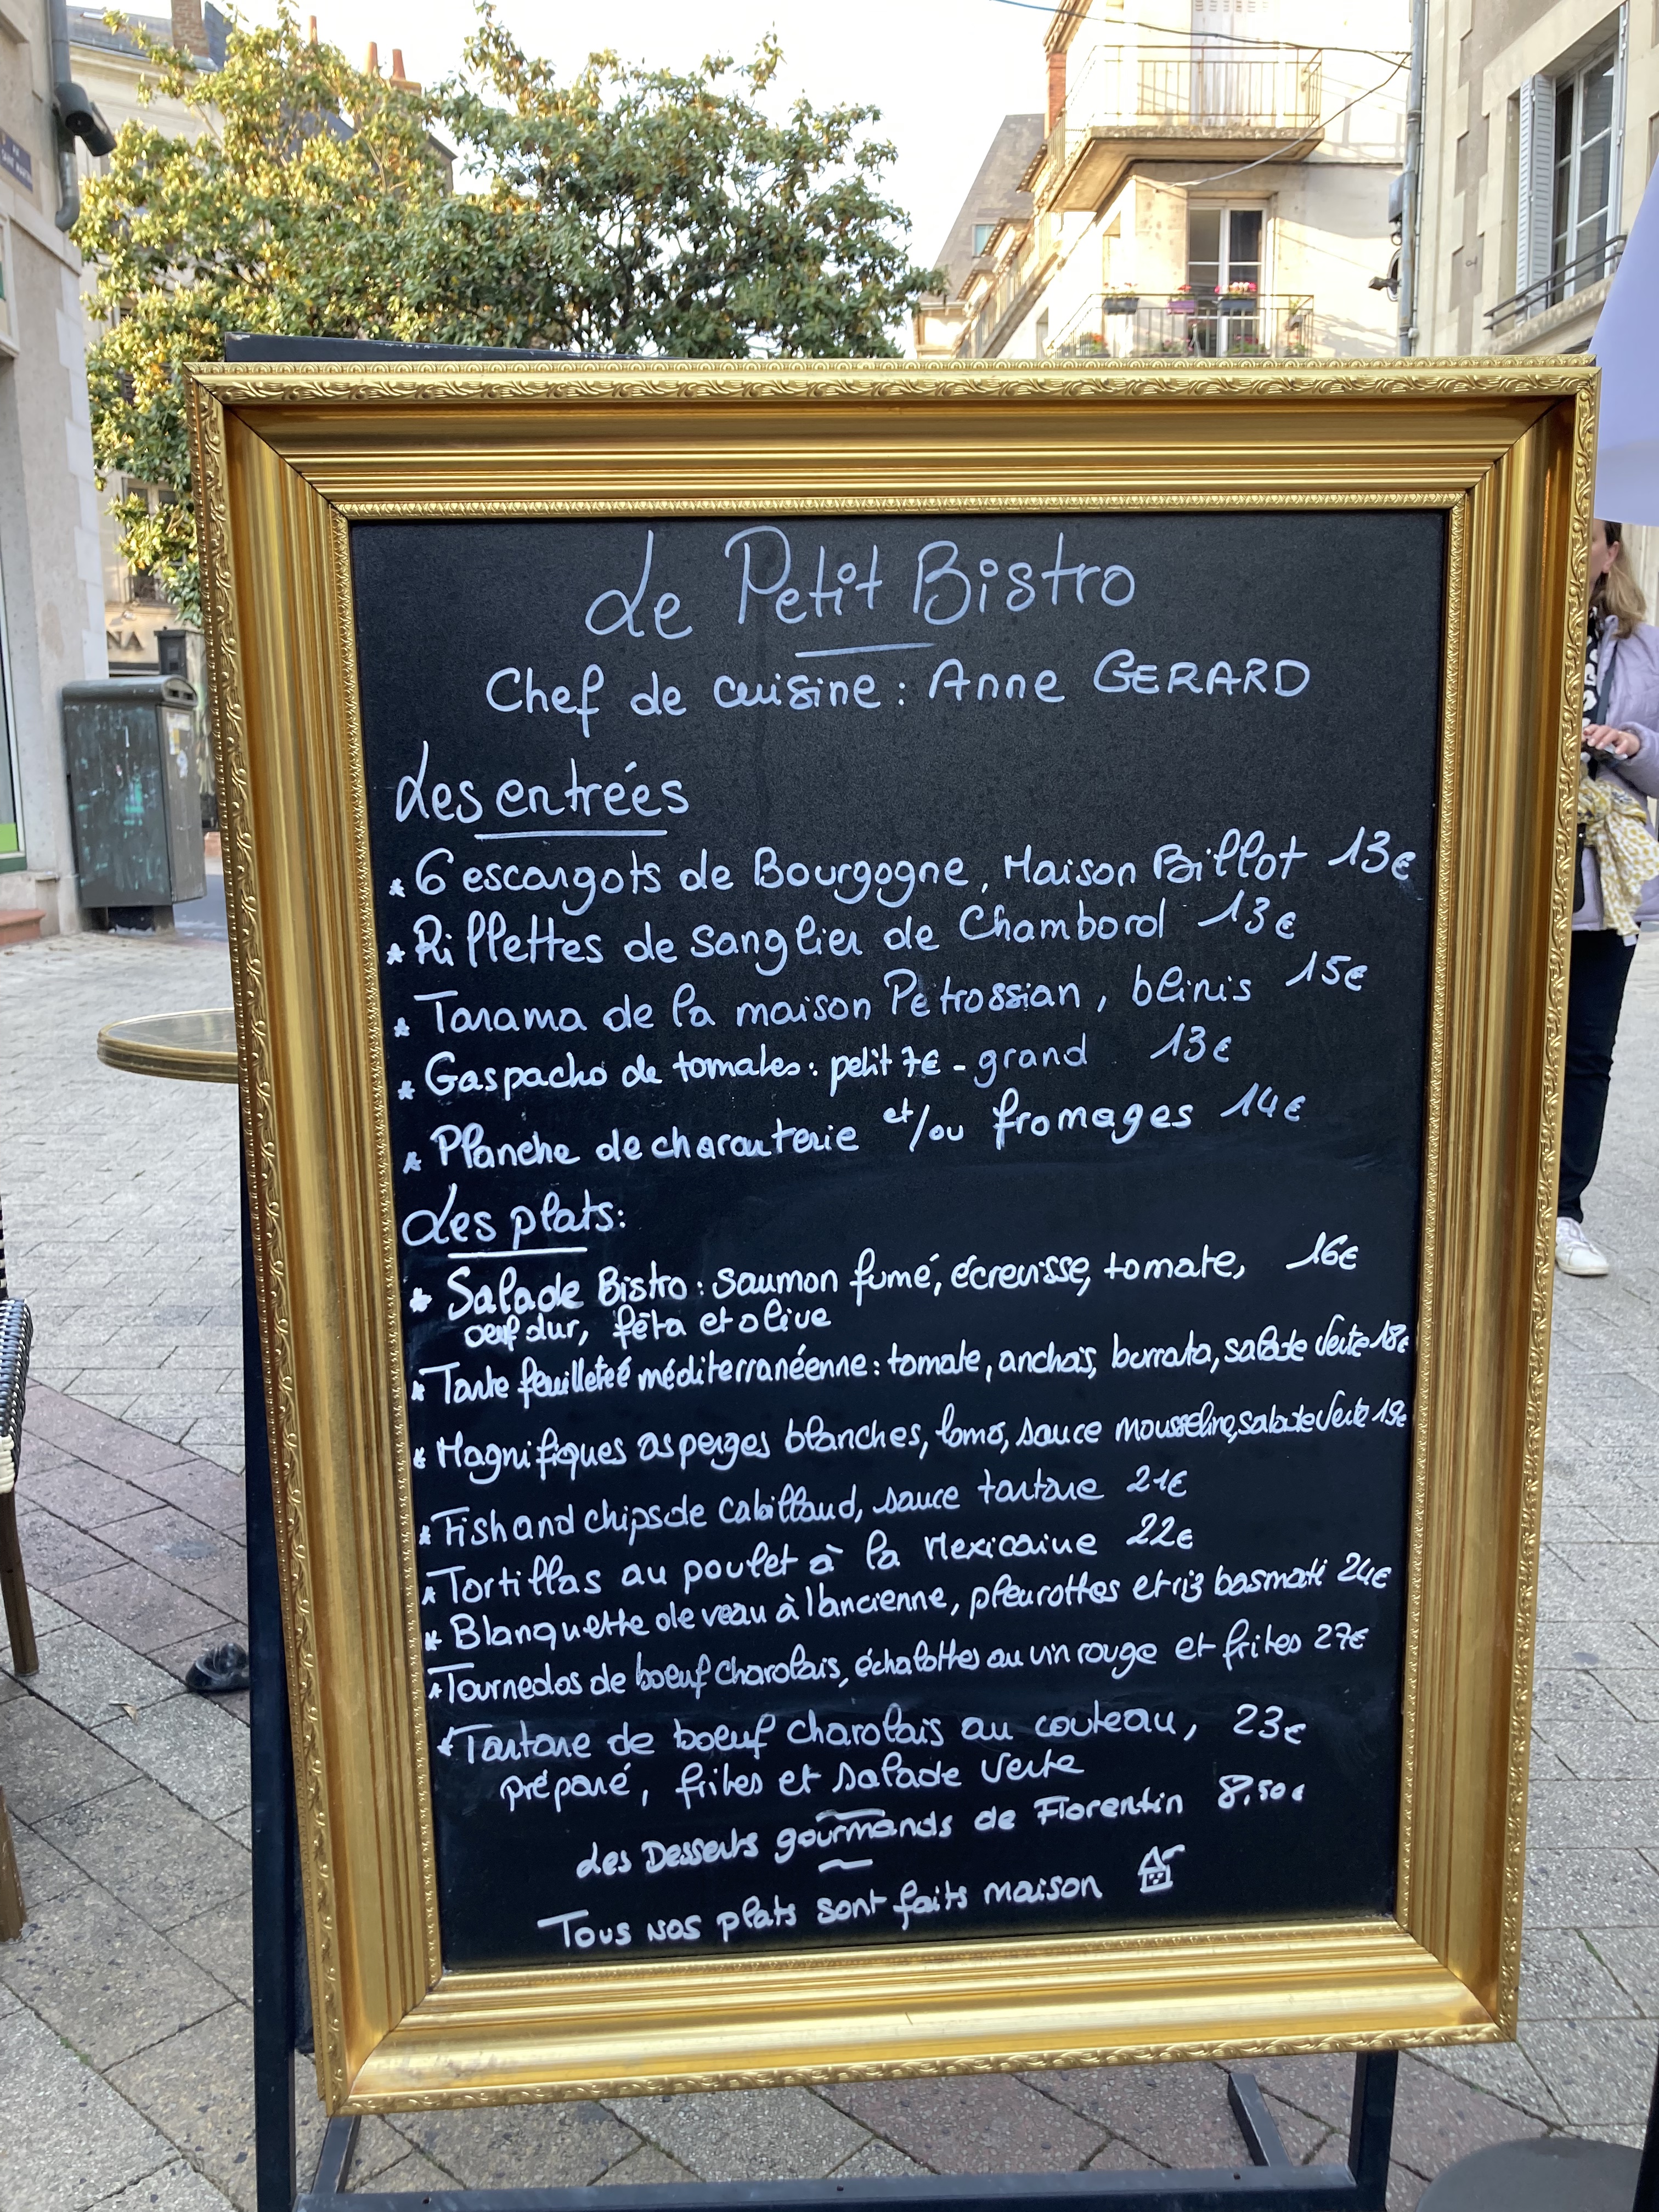 Le Petit Bistro
Chef de cuisine : Anne GERARD
Les entrées
* 6 escargots de Bourgogne, Maison Billot 13€
* Rillettes de sanglier de Chambord 13€
* Tarama de la maison Petrossian, blinis 15€
* Gaspacho de tomates : petit 7€ - grand 13€
* Planche de charcuterie et/ou fromages 14€
Les plats :
* Salade Bistro : saumon fumé, écrevisse, tomate, 16€
oeuf dur, fêta et olive
* Tarte feuilleteé méditerranéenne : tomate, anchois, burrata, salade verte 18€
* Magnifiques asperges blanches, lomo, sauce mousseline, salade verte 19€
* Fish and chips de Cabillaud, sauce tartare 21€
* Tortillas au poulet à la Mexicaine 22€
* Blanquette de veau à l'ancienne, pleurottes et riz basmati 24€
* Tournedos de boeuf charolais, échalottes au vin rouge et frites 27€
* Tartare de boeuf charolais au couteau, 23€
préparé, frites et salade verte
Les Desserts gourmands de Florentin 8,50€
Tous nos plats sont faits maison
NA